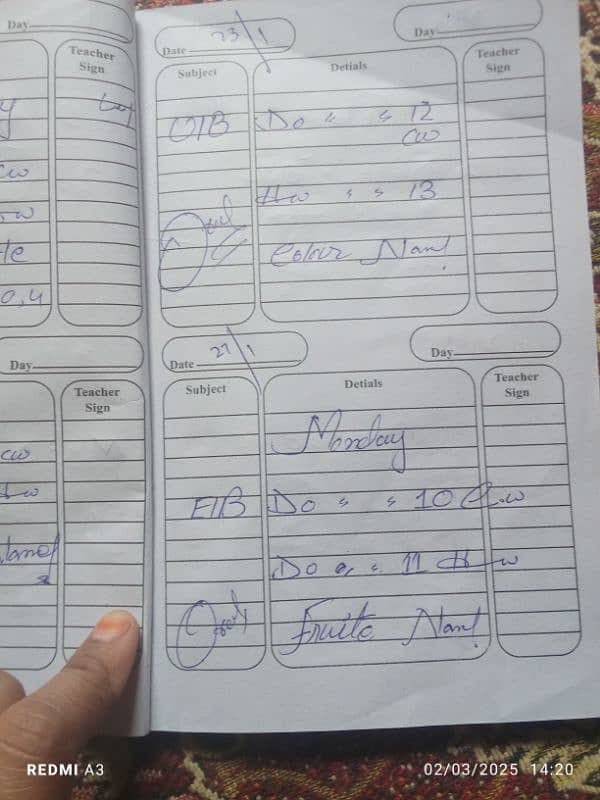 Day
Teacher
Sign
cw
0,4
Day
Teacher
Sign
cw
Date 23/1
Day
Subject
Detials
Teacher
Sign
UIB Do " " 12
cw
Hw " " 13
Oral
Colour Name
Date 27/1
Day
Subject
Detials
Teacher
Sign
Monday
EIB Do " " 10 C.w
Do " " 11 Hw
Oral
Fruits Name
REDMI A3
02/03/2025 14:20